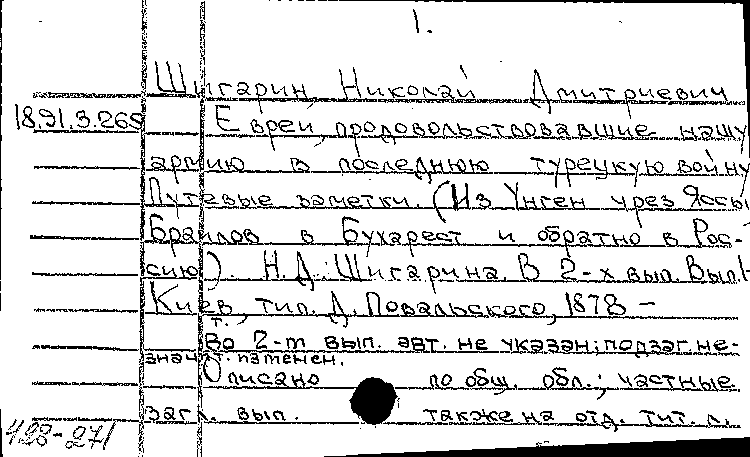 1.
Шигарин, Николай Дмитриевич
1891.3.265 Евреи, продовольствовавшие нашу
армию в последнюю турецкую войну
Путевые заметки. (Из Унген чрез Яссы
Браилов в Бухарест и обратно в Рос-
сию). Н.Д. Шигарина. В 2-х вып. Вып. 1
Киев, тип. Д. Повальского, 1878 –
т.
Во 2-т вып. авт. не указан; подзаг. не-
знач. изменен.
Описано по общ. обл.; частные
загл. вып. также на отд. тит. л.
428-271